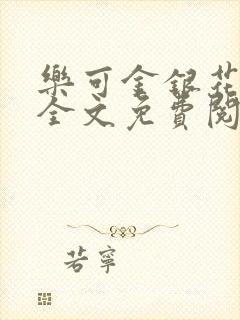 樂可金銀花
全文免費閱
若寧